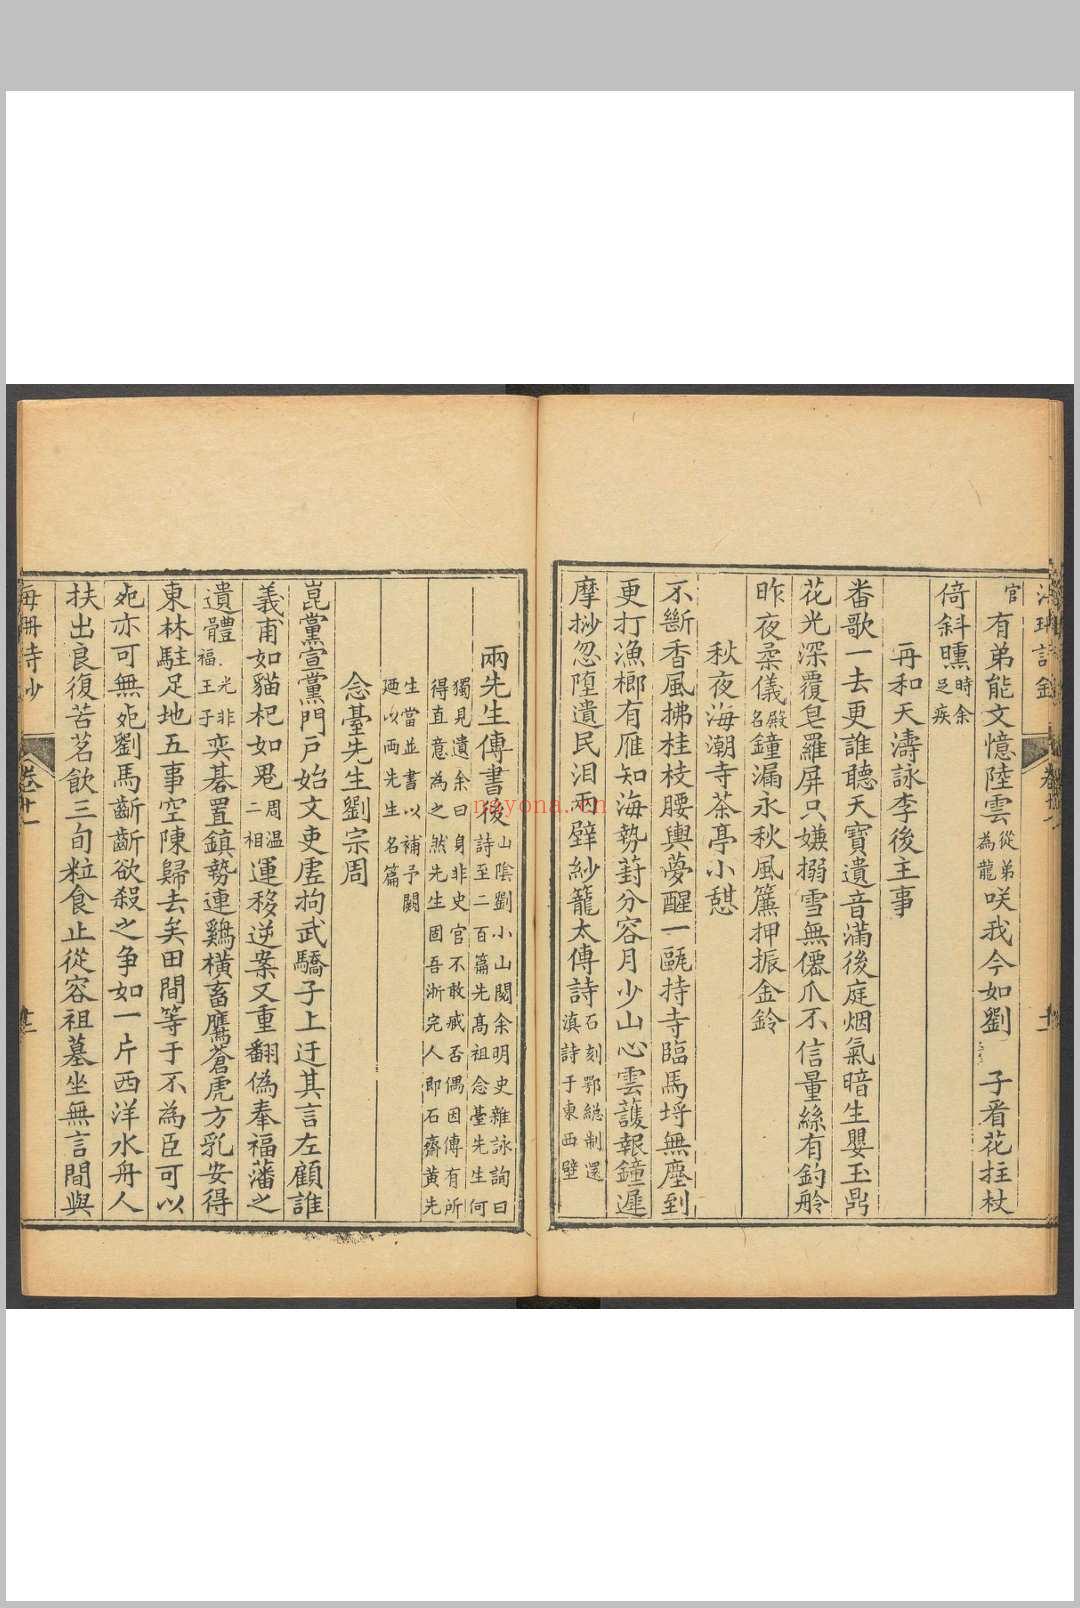 官有弟能文憶陸雲從弟為龍咲我今如劉子看花拄杖
倚斜曛時余足疾
再和天濤詠李後主事
番歌一去更誰聽天寶遺音滿後庭烟氣暗生嬰玉鼎
花光深覆皂羅屏只嫌搦雪無僊爪不信量絲有釣舲
昨夜柔儀殿名鐘漏永秋風簾押振金鈴
秋夜海潮寺茶亭小憩
不斷香風拂桂枝腰輿夢醒一甌持寺臨馬埒無塵到
更打漁榔有雁知海勢葑分容月少山心雲護報鐘遲
摩挱忽墮遺民泪丙壁紗籠太傅詩石刻鄂緫制還滇詩于東西壁
兩先生傳書後山陰劉小山閱余明史雜詠詢曰詩至二百篇先高祖念臺先生何
獨見遺余曰身非史官不敢臧否偶因傳有所得直意為之然先生固吾浙完人即石齋黃先
生當並書以補予闕廼以兩先生名篇
念臺先生劉宗周
崑黨宣黨門戶始文吏虛拘武驕子上迂其言左顧誰
義甫如貓杞如鬼周温二相運移逆案又重翻偽奉福藩之
遺體福王光非子奕碁置鎮勢連鷄橫畜鷹蒼虎方乳安得
東林駐足地五事空陳歸去矣田間等于不為臣可以
死亦可無死劉馬齗齗欲殺之争如一片西洋水舟人
扶出良復苦茗飲三旬粒食止從容祖墓坐無言間與
卷十一
ngyona.cn